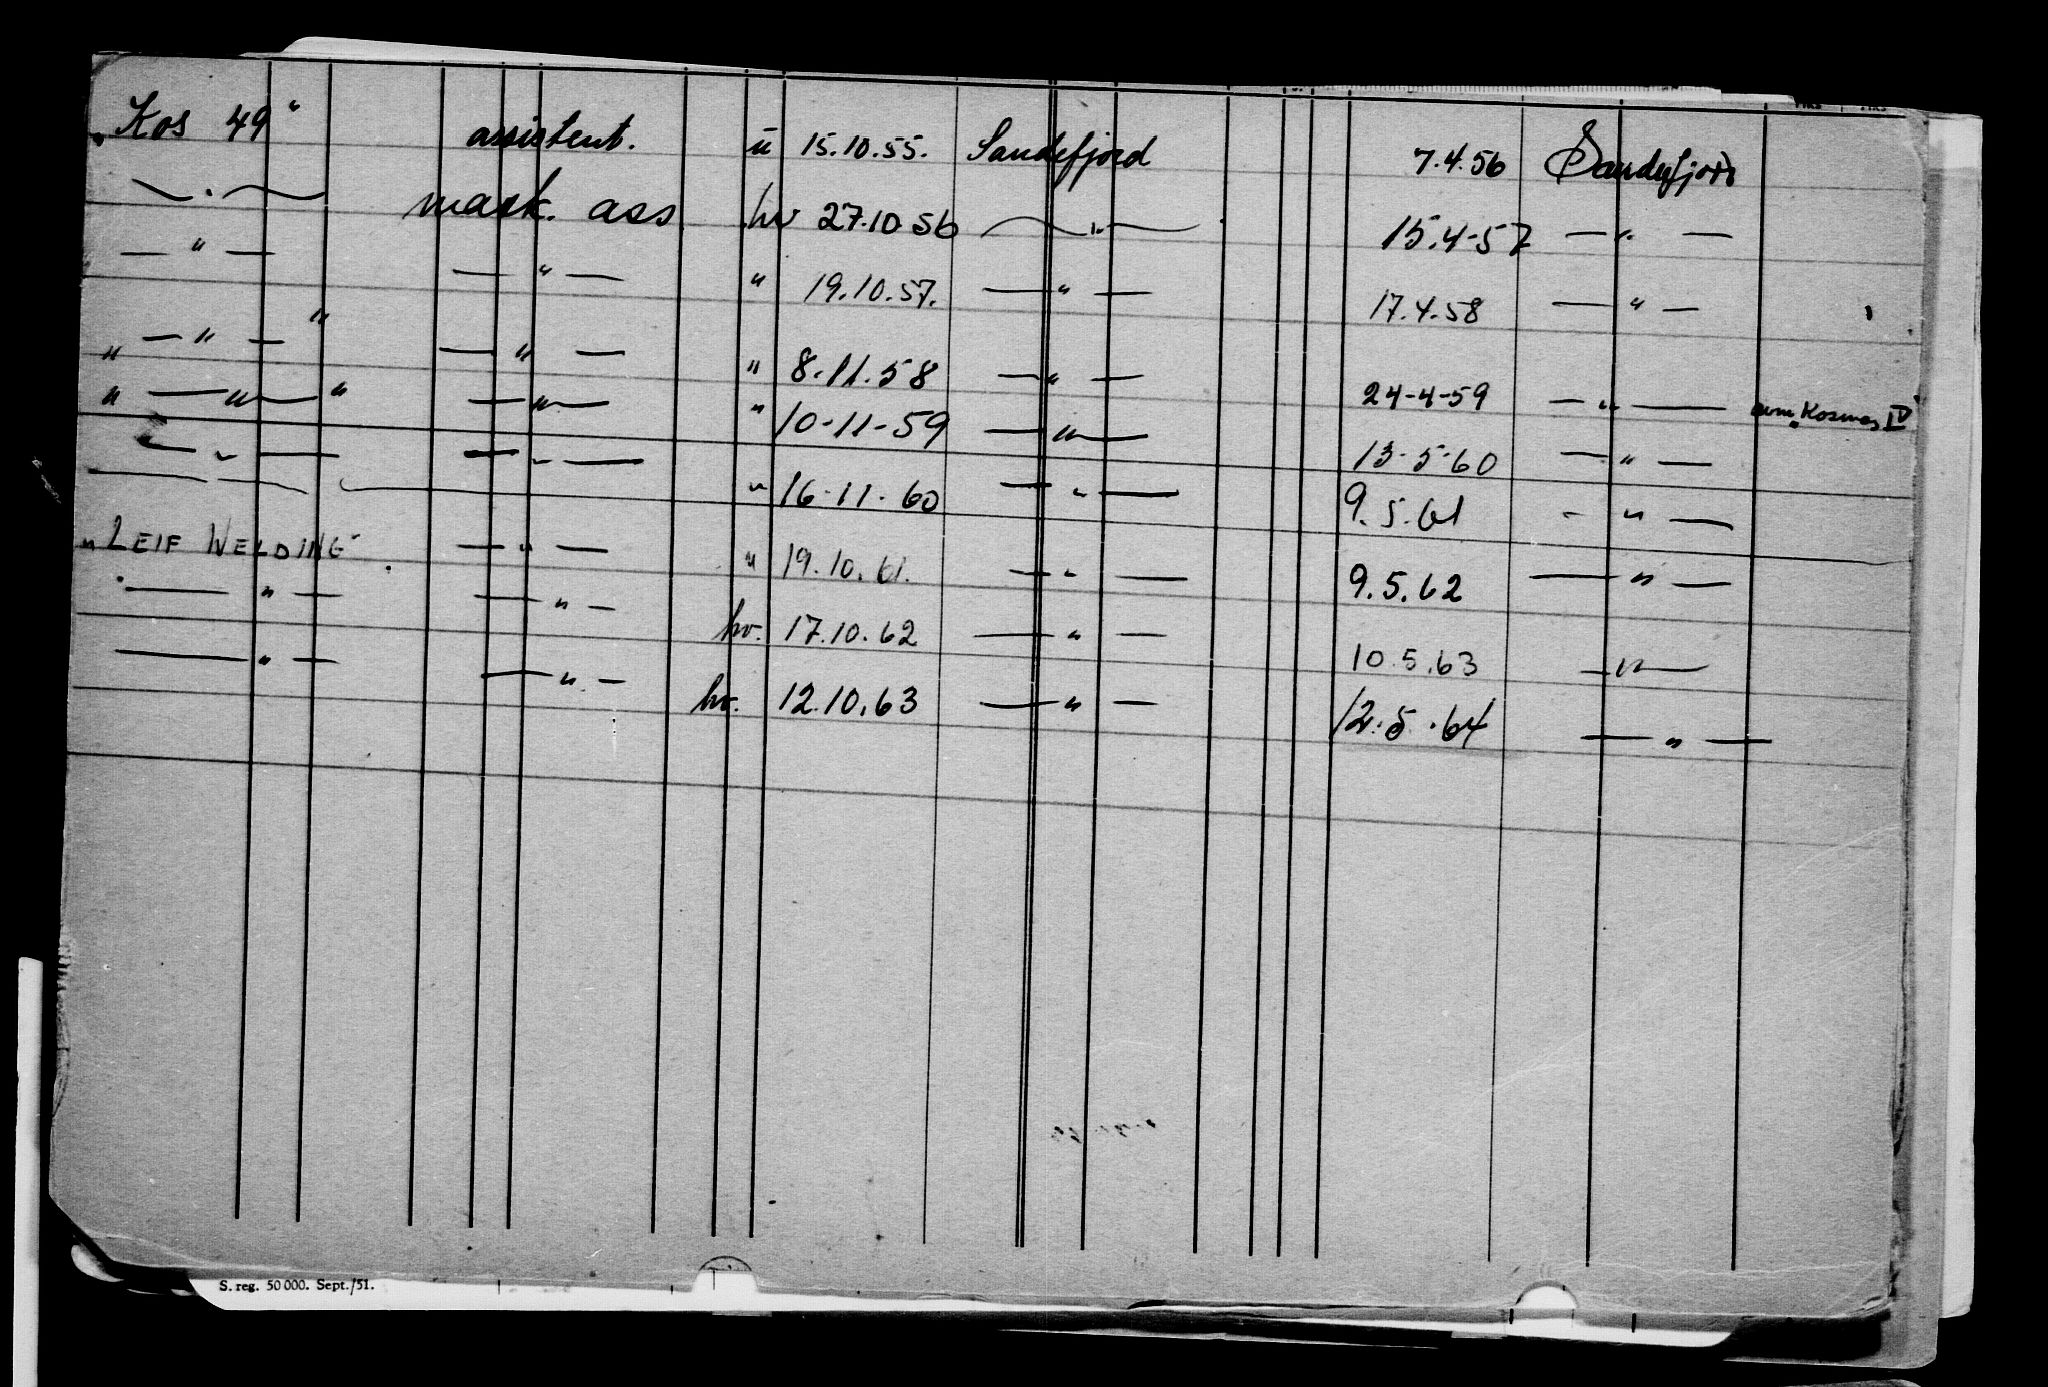 „Kos 49“ assistent. ü 15.10.55. Sandefjord 7.4.56 Sandefjord
— " — mask. ass hv 27.10 56 — " — 15.4-57 — " —
— " — — " — " 19.10.57. — " — 17.4.58 — " —
" — " — " — " — " 8.11.58 — " — 24-4-59 — " — Kosmos IV
" — " — " — " — " 10-11-59 — " — 13-5-60 — " —
— " — — " — " 16-11-60 — " — 9.5.61 - " —
„LEIF WELDING“ — " — " 19.10.61. — " — 9.5.62 — " —
— " — — " — hv. 17.10.62 — " — 10.5.63 — " —
— " — — " — hv. 12.10.63 — " — 12.5.64 — " —
S. reg. 50 000. Sept./51.